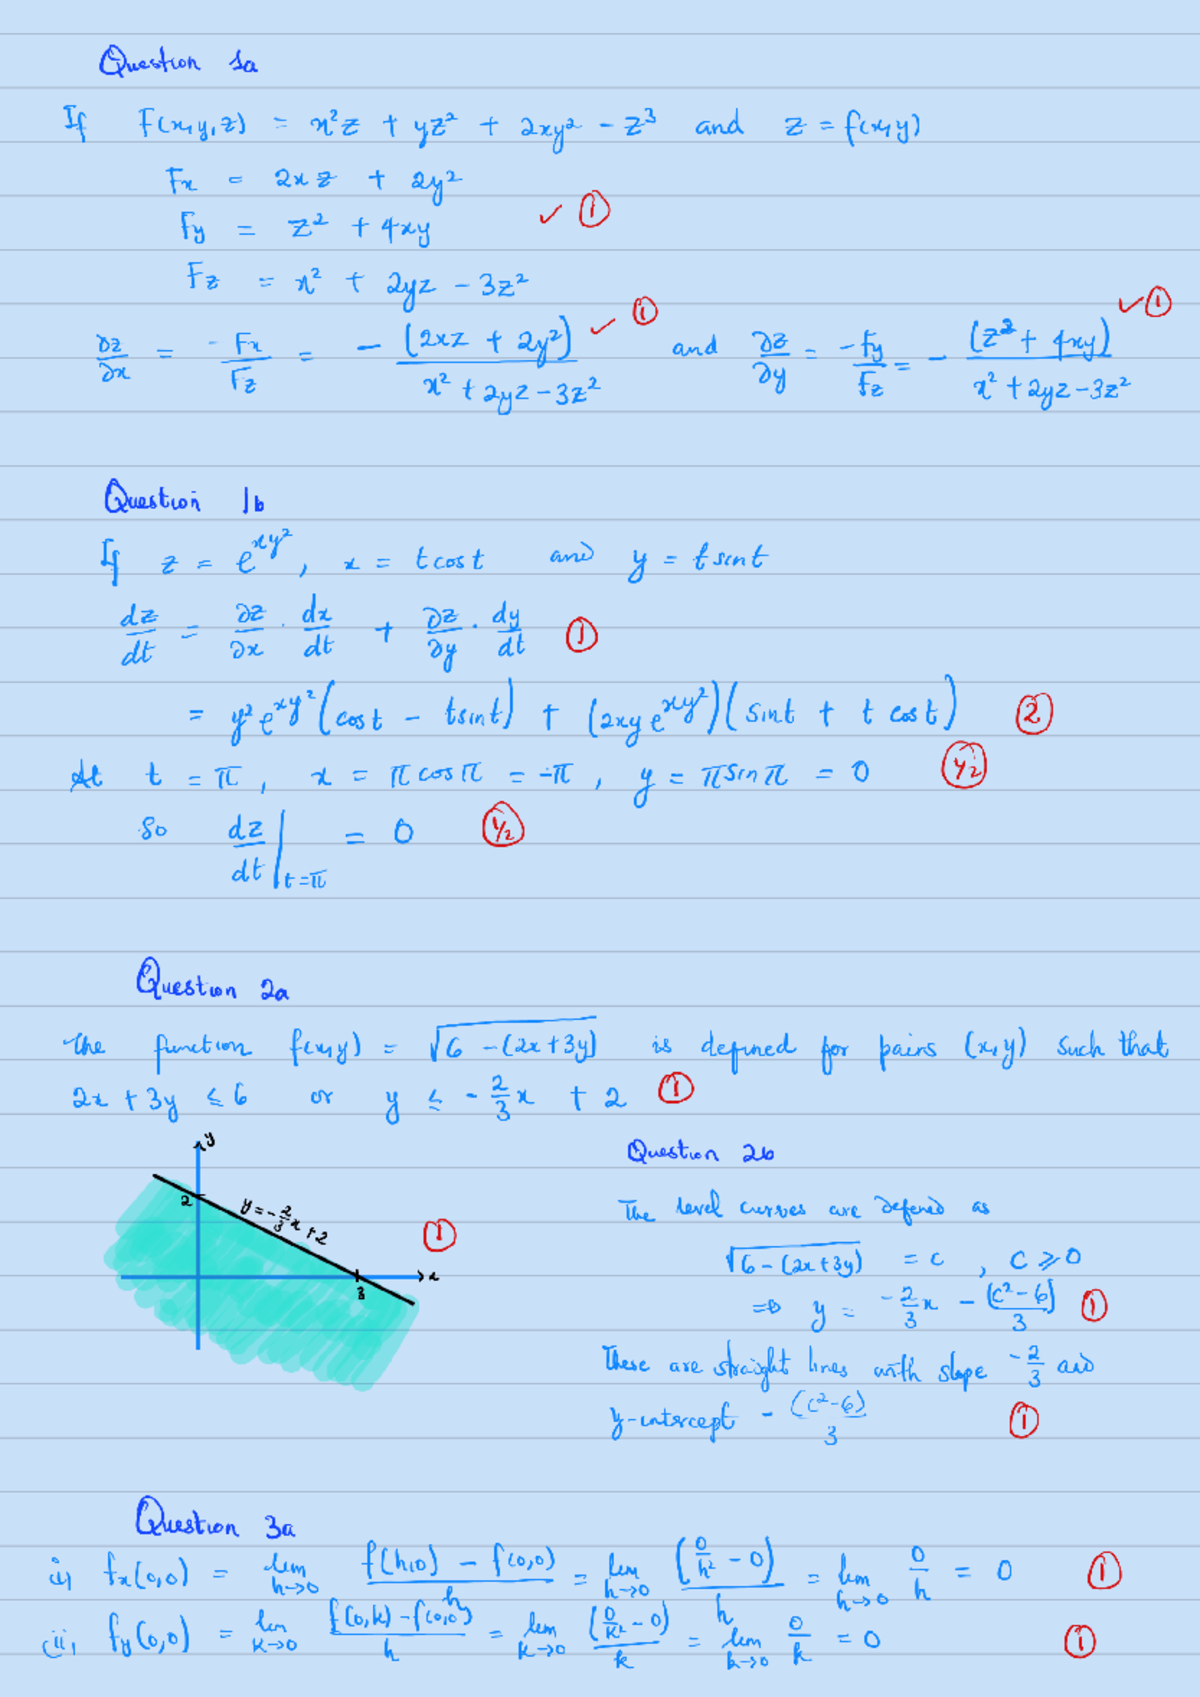 Question 1a
If F(x,y,z) = x²z + yz² + 2xy² - z³ and z = f(x,y)
Fx = 2xz + 2y²
Fy = z² + 4xy ✓ ①
Fz = x² + 2yz - 3z²
∂z/∂x = -Fx/Fz = -(2xz + 2y²)/(x² + 2yz - 3z²) ✓ ① and ∂z/∂y = -Fy/Fz = -(z² + 4xy)/(x² + 2yz - 3z²) ✓ ①
Question 1b
If z = e^(xy²), x = t cos t and y = t sin t
dz/dt = ∂z/∂x · dx/dt + ∂z/∂y · dy/dt ①
= y² e^(xy²) (cos t - t sin t) + (2xy e^(xy²)) (sin t + t cos t) ②
At t = π, x = π cos π = -π, y = π sin π = 0 (1/2)
So dz/dt |t=π = 0 (1/2)
Question 2a
The function f(x,y) = √(6 - (2x+3y)) is defined for pairs (x,y) such that
2x + 3y ≤ 6 or y ≤ -2/3 x + 2 ①
y
2
y = -2/3 x + 2
①
x
3
Question 2b
The level curves are defined as
√(6 - (2x+3y)) = c, c ≥ 0
⇒ y = -2/3 x - (c² - 6)/3 ①
These are straight lines with slope -2/3 and
y-intercept - (c² - 6)/3 ①
Question 3a
(i) fx(0,0) = lim h→0 (f(h,0) - f(0,0))/h = lim h→0 (0/h² - 0)/h = lim h→0 0/h = 0 ①
(ii) fy(0,0) = lim k→0 (f(0,k) - f(0,0))/h = lim k→0 (0/k² - 0)/k = lim k→0 0/k = 0 ①